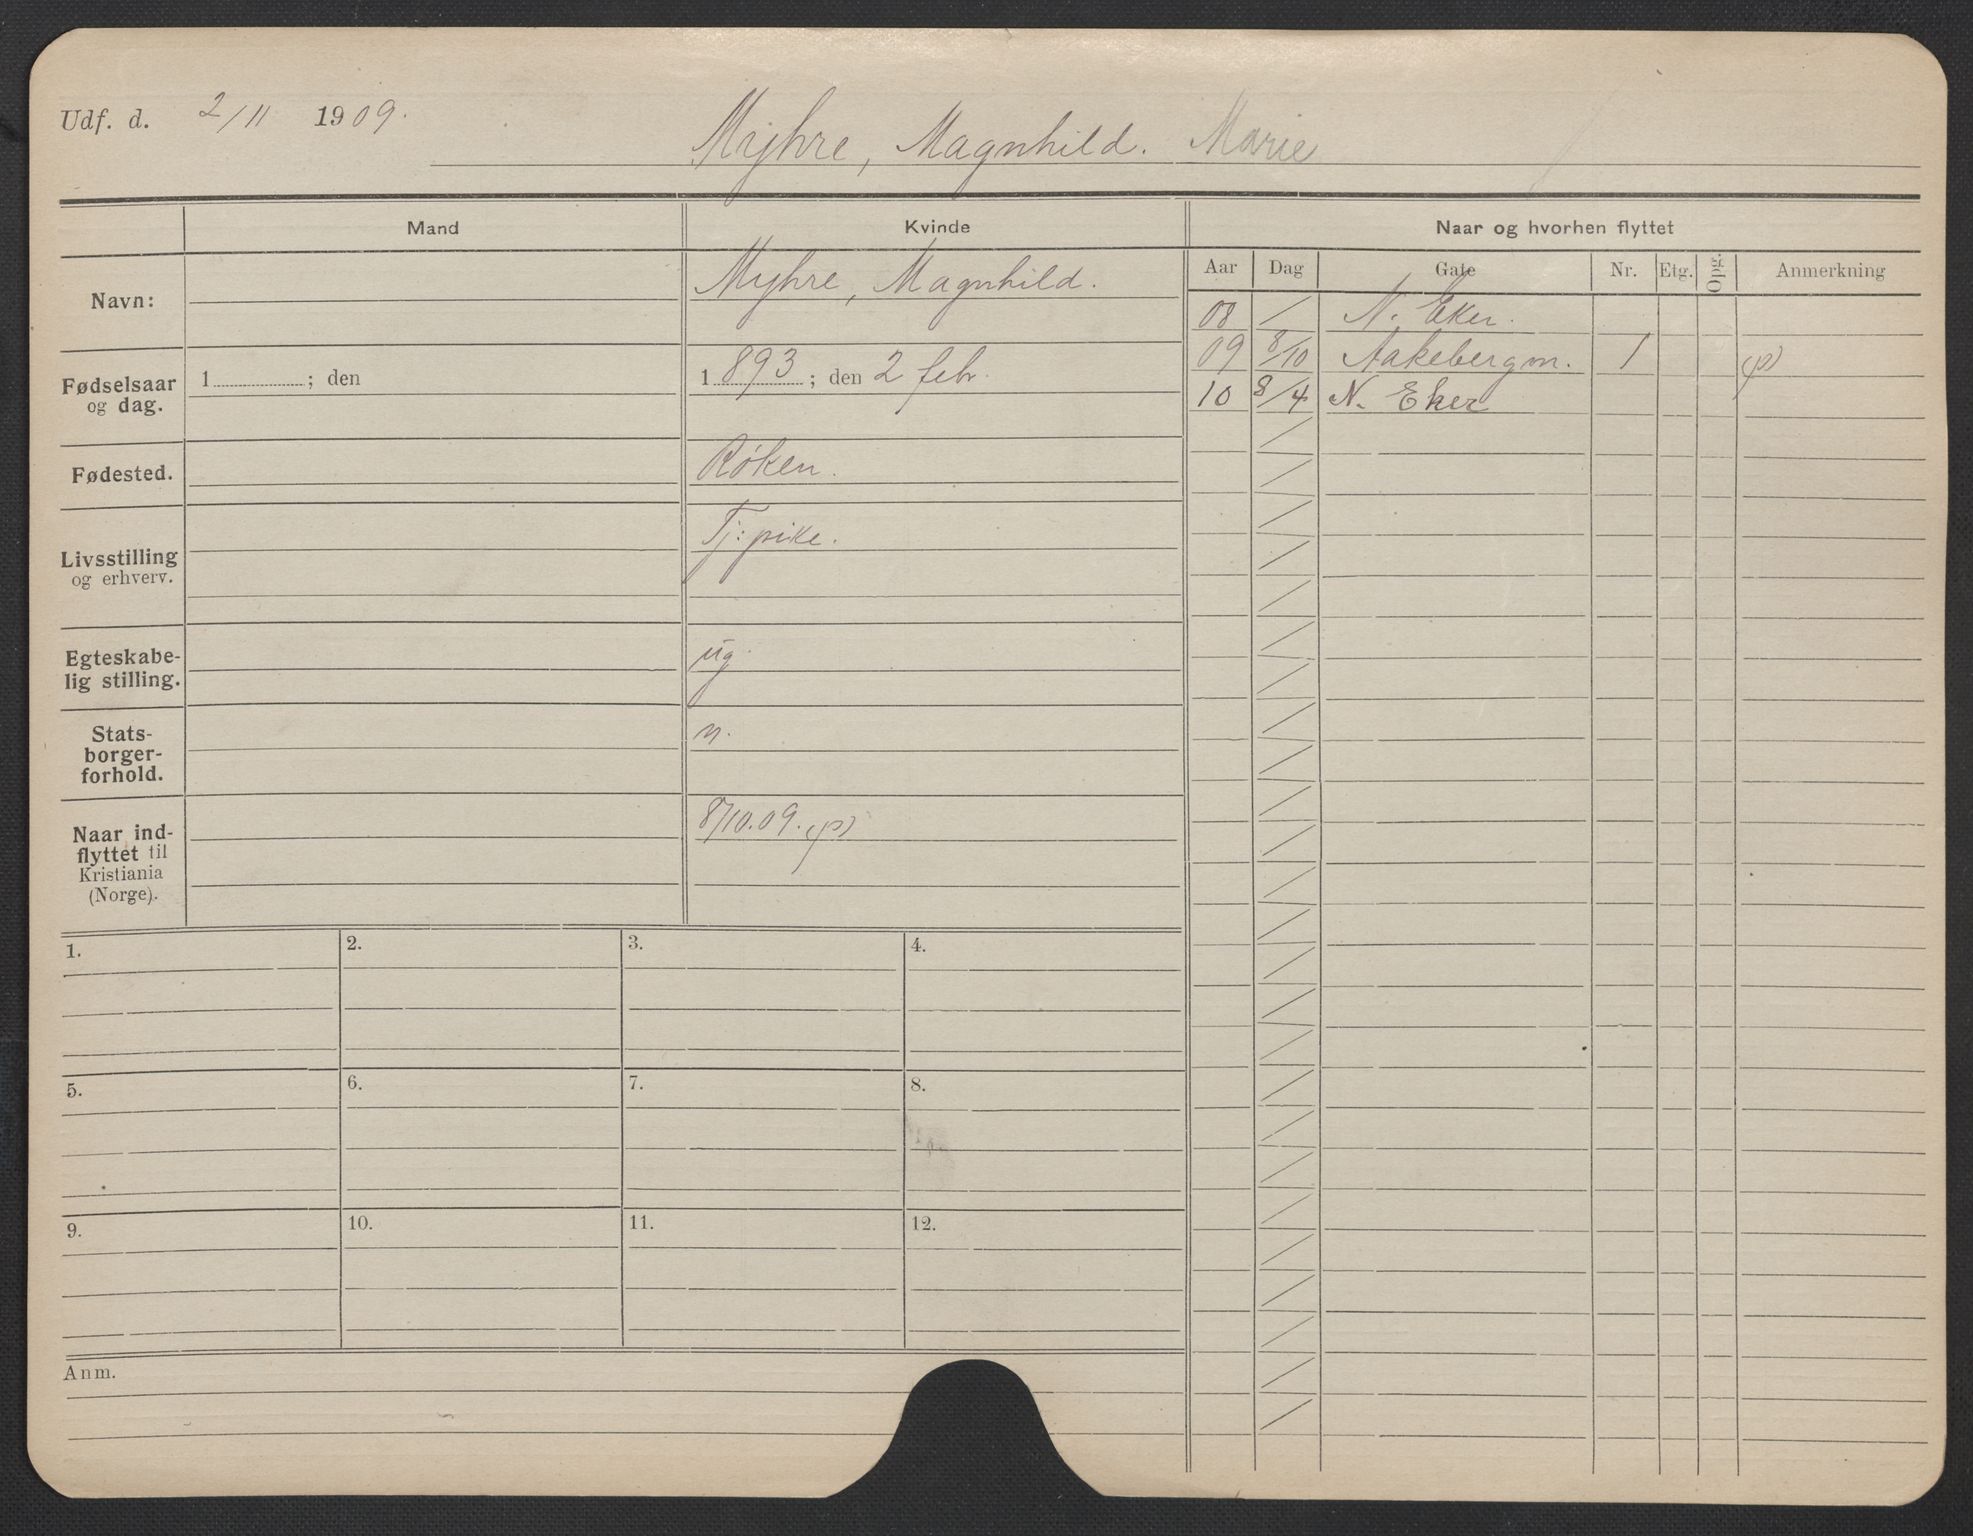 Udf. d. 2/11 1909.
Myhre, Magnhild. Marie
Mand Kvinde Naar og hvorhen flyttet
Aar Dag Gate Nr. Etg. Opg. Anmerkning
Navn: Myhre, Magnhild.
08 / N. Eker.
09 8/10 Aakebergvn. 1 (p)
10 8/4 N. Eker
Fødselsaar
og dag.
1 ; den
1893 ; den 2 febr.
Fødested. Røken.
Livsstilling
og erhverv.
Tj: pike.
Egteskabe-
lig stilling.
ug.
Stats-
borger-
forhold.
n.
Naar ind-
flyttet til
Kristiania
(Norge).
8/10.09. (p)
1. 2. 3. 4.
5. 6. 7. 8.
9. 10. 11. 12.
Anm.